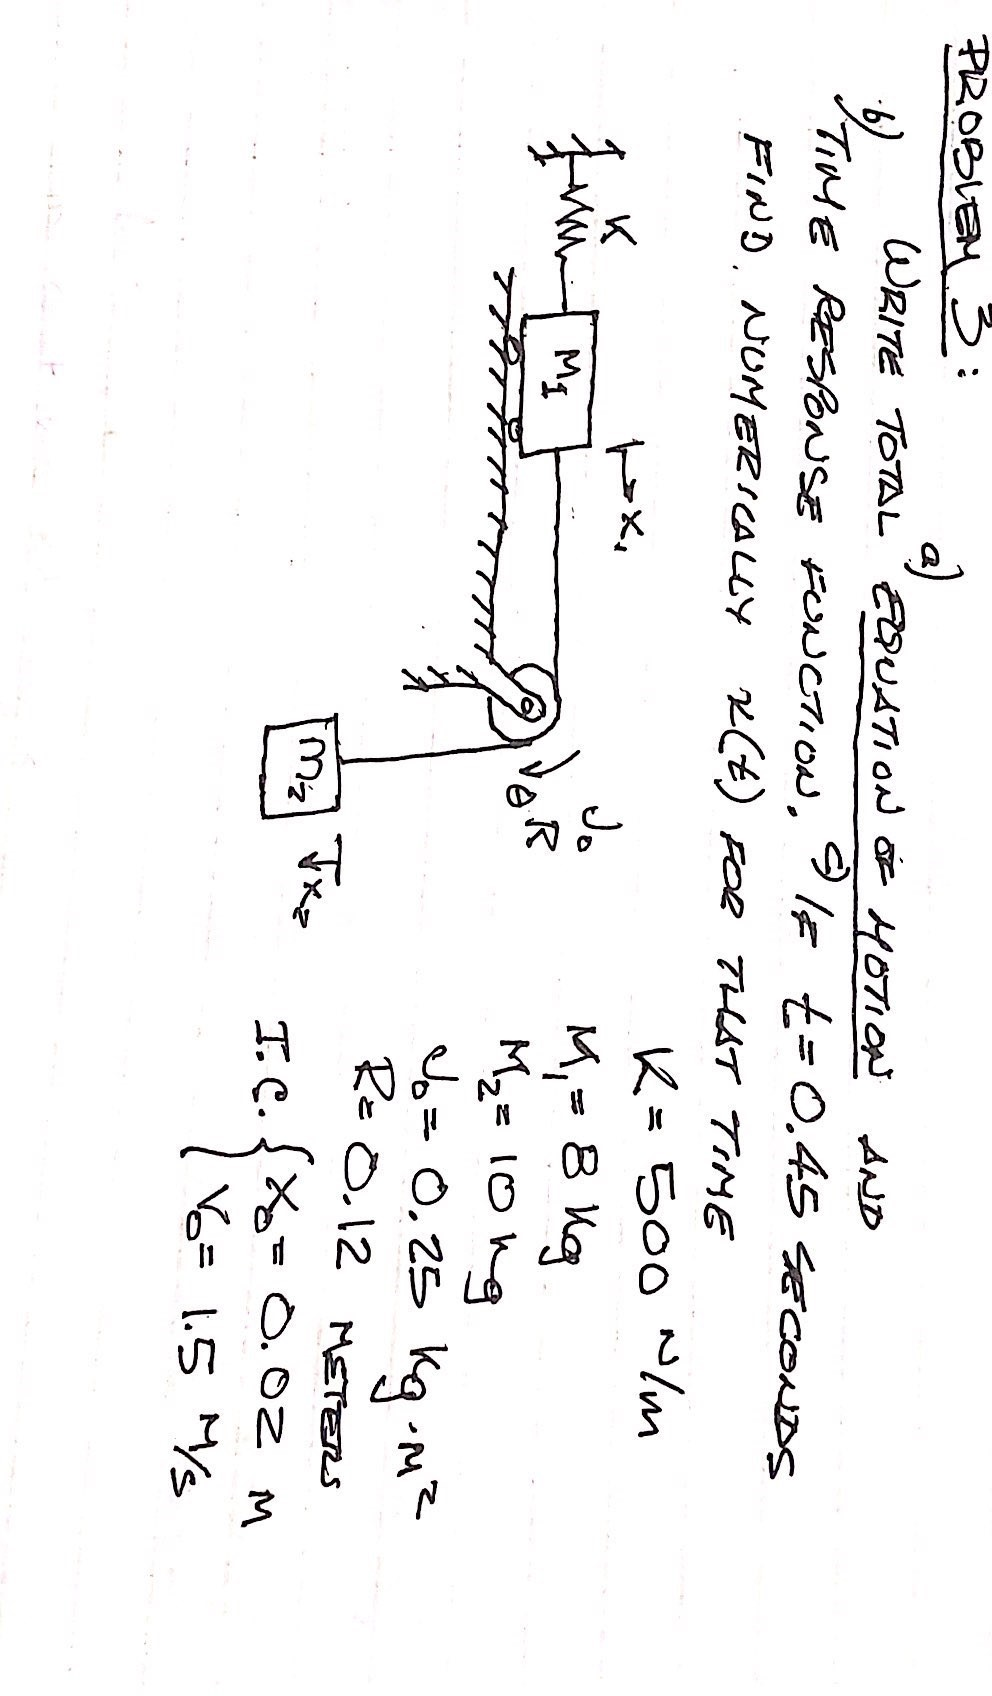 PROBLEM 3:
a)
WRITE TOTAL EQUATION OF MOTION AND
b) TIME RESPONSE FUNCTION. c) IF t = 0.45 SECONDS
FIND NUMERICALLY x(t) FOR THAT TIME
K
M1
x1
J0
R
θ
m2
x2
K = 500 N/m
M1 = 8 kg
M2 = 10 kg
J0 = 0.25 kg·m2
R = 0.12 METERS
I.C. { X0 = 0.02 M
V0 = 1.5 M/s